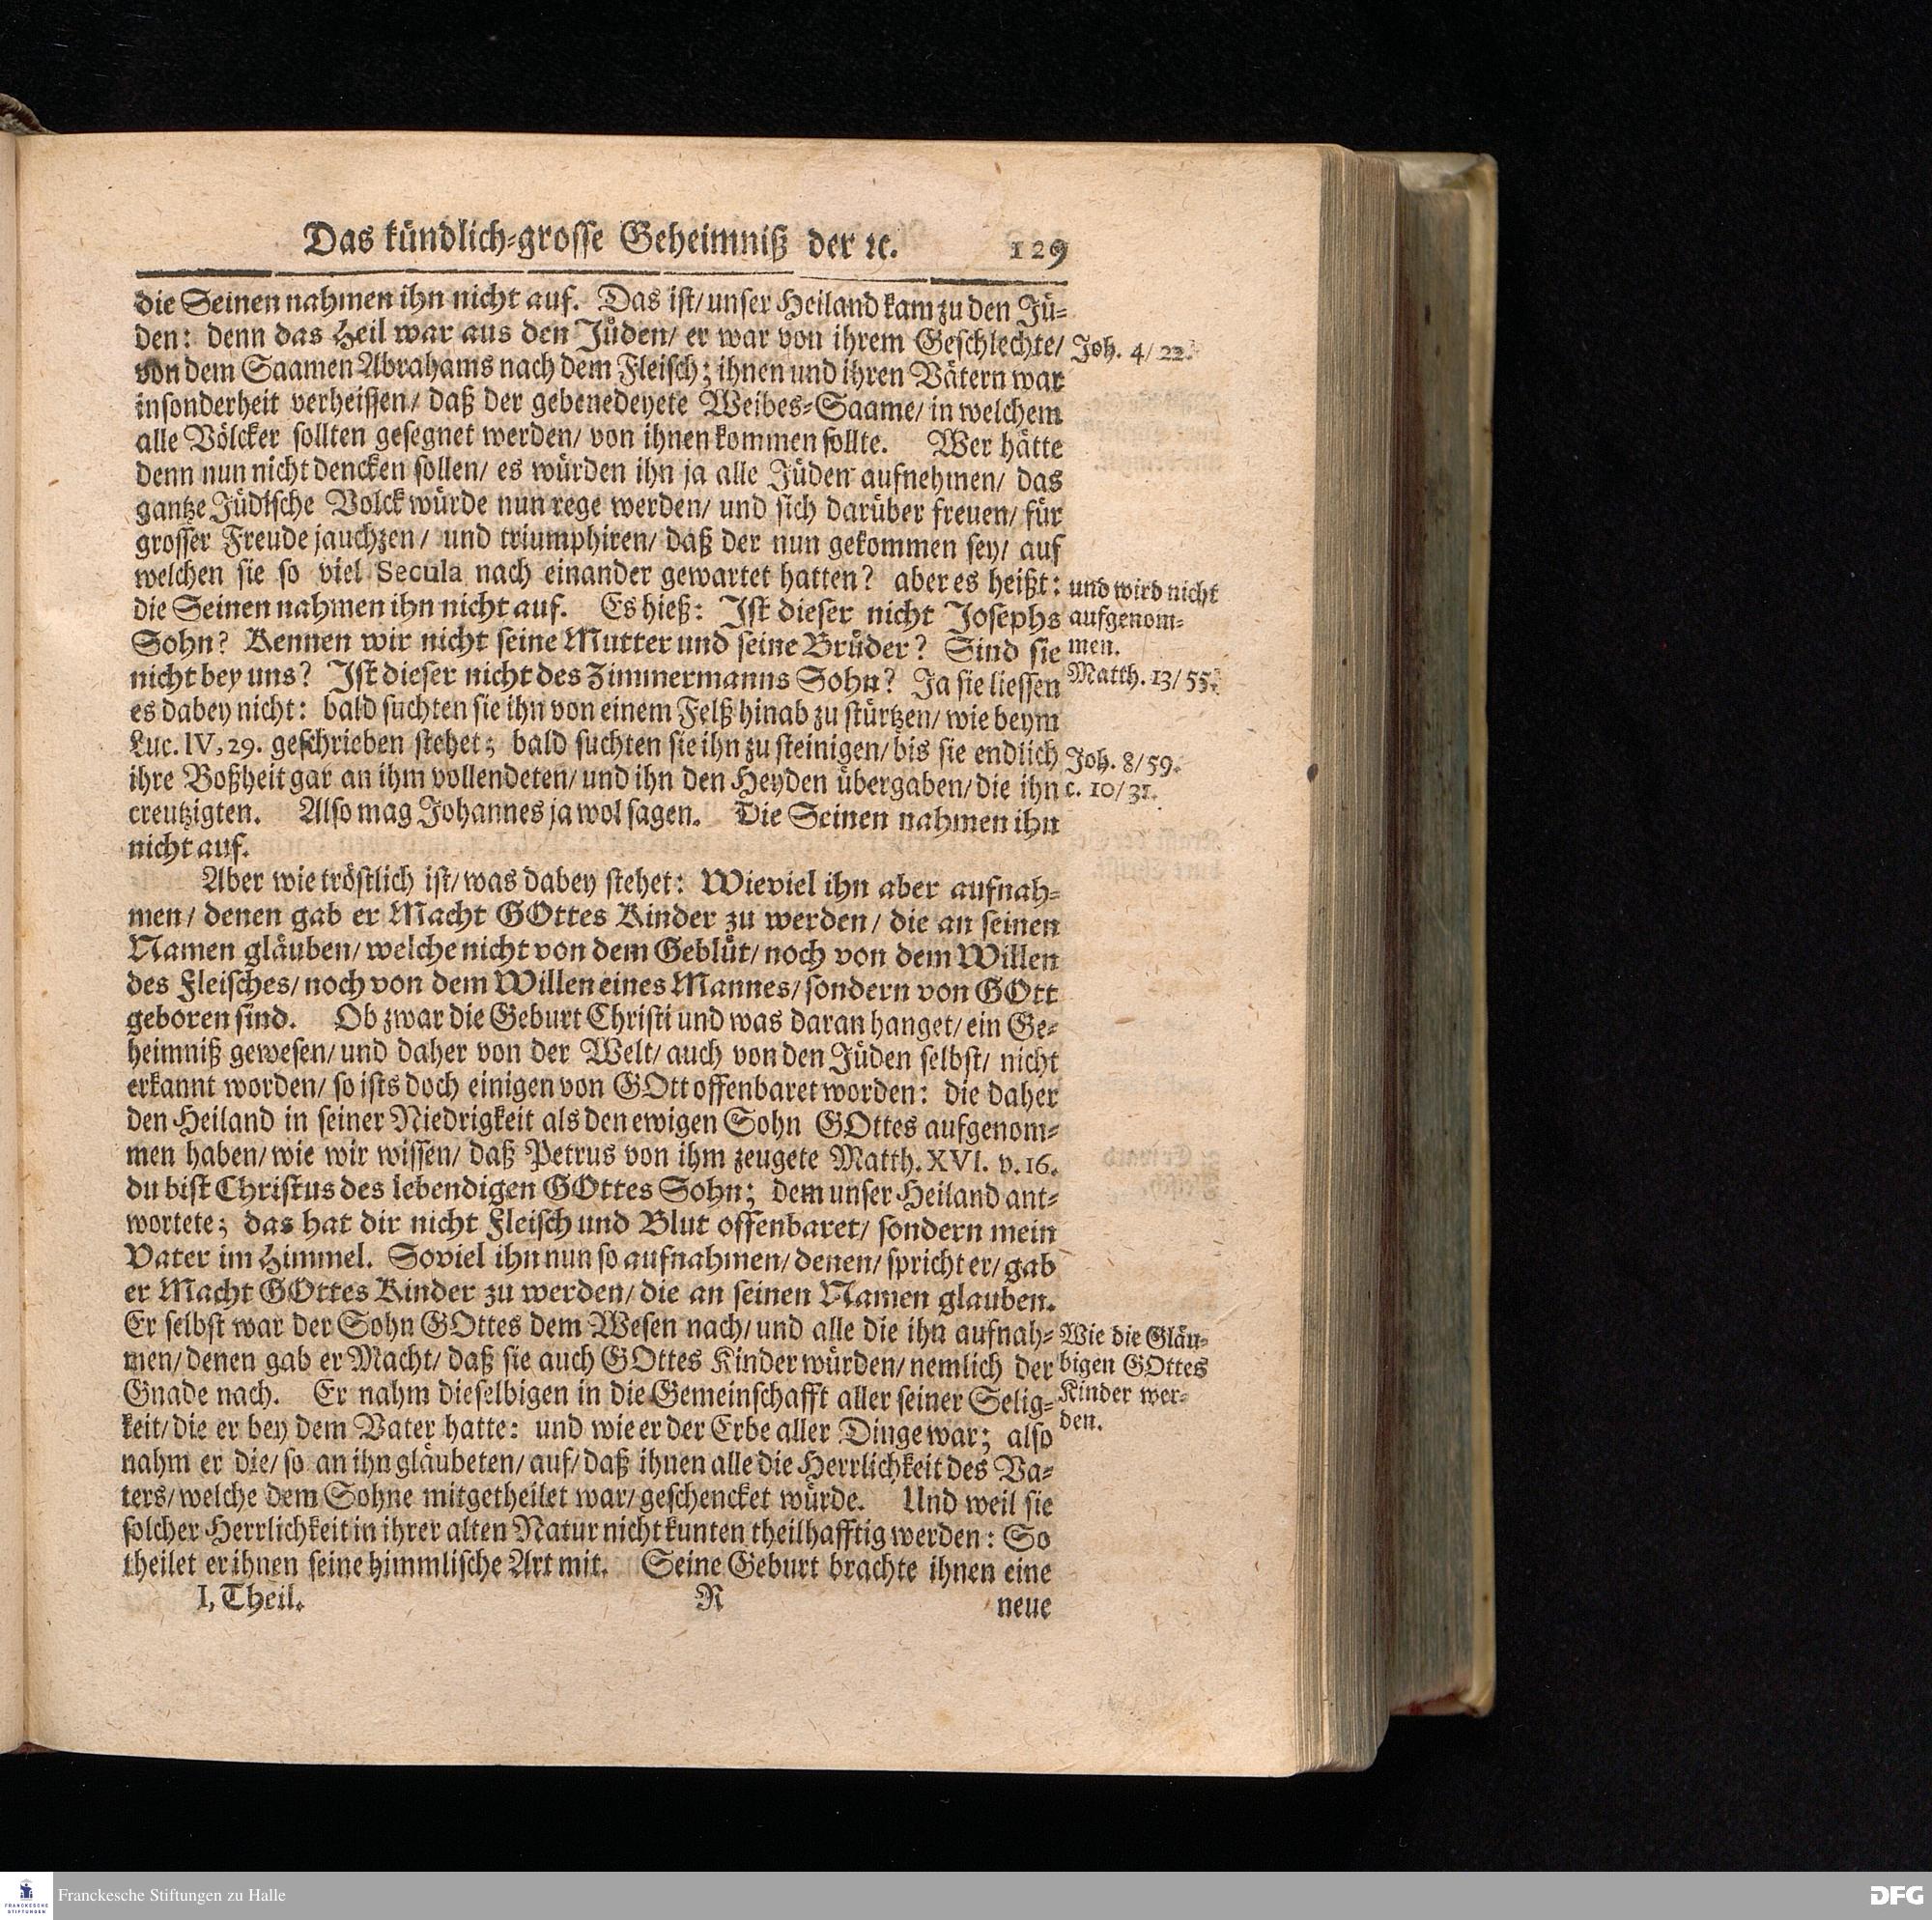 Das kündlich-grosse Geheimniß der ꝛc. 129
die Seinen nahmen ihn nicht auf. Das ist/ unser Heiland kam zu den Jü-
den: denn das Heil war aus den Jüden/ er war von ihrem Geschlechte/
von dem Saamen Abrahams nach dem Fleisch; ihnen und ihren Vätern war
insonderheit verheissen/ daß der gebenedeyete Weibes-Saame/ in welchem
alle Völcker sollten gesegnet werden/ von ihnen kommen sollte. Wer hätte
denn nun nicht dencken sollen/ es würden ihn ja alle Jüden aufnehmen/ das
gantze Jüdische Volck würde nun rege werden/ und sich darüber freuen/ für
grosser Freude jauchzen/ und triumphiren/ daß der nun gekommen sey/ auf
welchen sie so viel Secula nach einander gewartet hatten? aber es heißt:
die Seinen nahmen ihn nicht auf. Es hieß: Ist dieser nicht Josephs
Sohn? Kennen wir nicht seine Mutter und seine Brüder? Sind sie
nicht bey uns? Ist dieser nicht des Zimmermanns Sohn? Ja sie liessen
es dabey nicht: bald suchten sie ihn von einem Felß hinab zu stürtzen/ wie beym
Luc. IV, 29. geschrieben stehet; bald suchten sie ihn zu steinigen/ bis sie endlich
ihre Boßheit gar an ihm vollendeten/ und ihn den Heyden übergaben/ die ihn
creutzigten. Also mag Johannes ja wol sagen. Die Seinen nahmen ihn
nicht auf.
Aber wie tröstlich ist/ was dabey stehet: Wieviel ihn aber aufnah-
men/ denen gab er Macht GOttes Kinder zu werden/ die an seinen
Namen gläuben/ welche nicht von dem Geblüt/ noch von dem Willen
des Fleisches/ noch von dem Willen eines Mannes/ sondern von GOtt
geboren sind. Ob zwar die Geburt Christi und was daran hanget/ ein Ge-
heimniß gewesen/ und daher von der Welt/ auch von den Jüden selbst/ nicht
erkannt worden/ so ists doch einigen von GOtt offenbaret worden: die daher
den Heiland in seiner Niedrigkeit als den ewigen Sohn GOttes aufgenom-
men haben/ wie wir wissen/ daß Petrus von ihm zeugete Matth. XVI. v. 16.
du bist Christus des lebendigen GOttes Sohn; dem unser Heiland ant-
wortete; das hat dir nicht Fleisch und Blut offenbaret/ sondern mein
Vater im Himmel. Soviel ihn nun so aufnahmen/ denen/ spricht er/ gab
er Macht GOttes Kinder zu werden/ die an seinen Namen glauben.
Er selbst war der Sohn GOttes dem Wesen nach/ und alle die ihn aufnah-
men/ denen gab er Macht/ daß sie auch GOttes Kinder würden/ nemlich der
Gnade nach. Er nahm dieselbigen in die Gemeinschafft aller seiner Selig-
keit/ die er bey dem Vater hatte: und wie er der Erbe aller Dinge war; also
nahm er die/ so an ihn gläubeten/ auf/ daß ihnen alle die Herrlichkeit des Va-
ters/ welche dem Sohne mitgetheilet war/ geschencket würde. Und weil sie
solcher Herrlichkeit in ihrer alten Natur nicht kunten theilhafftig werden: So
theilet er ihnen seine himmlische Art mit. Seine Geburt brachte ihnen eine
I, Theil. R neue
Joh. 4/ 22.
und wird nicht
aufgenom-
men.
Matth. 13/ 55.
Joh. 8/ 59.
c. 10/ 31.
Wie die Gläu-
bigen GOttes
Kinder wer-
den.
FRANCKESCHE
STIFTUNGEN
Franckesche Stiftungen zu Halle
DFG